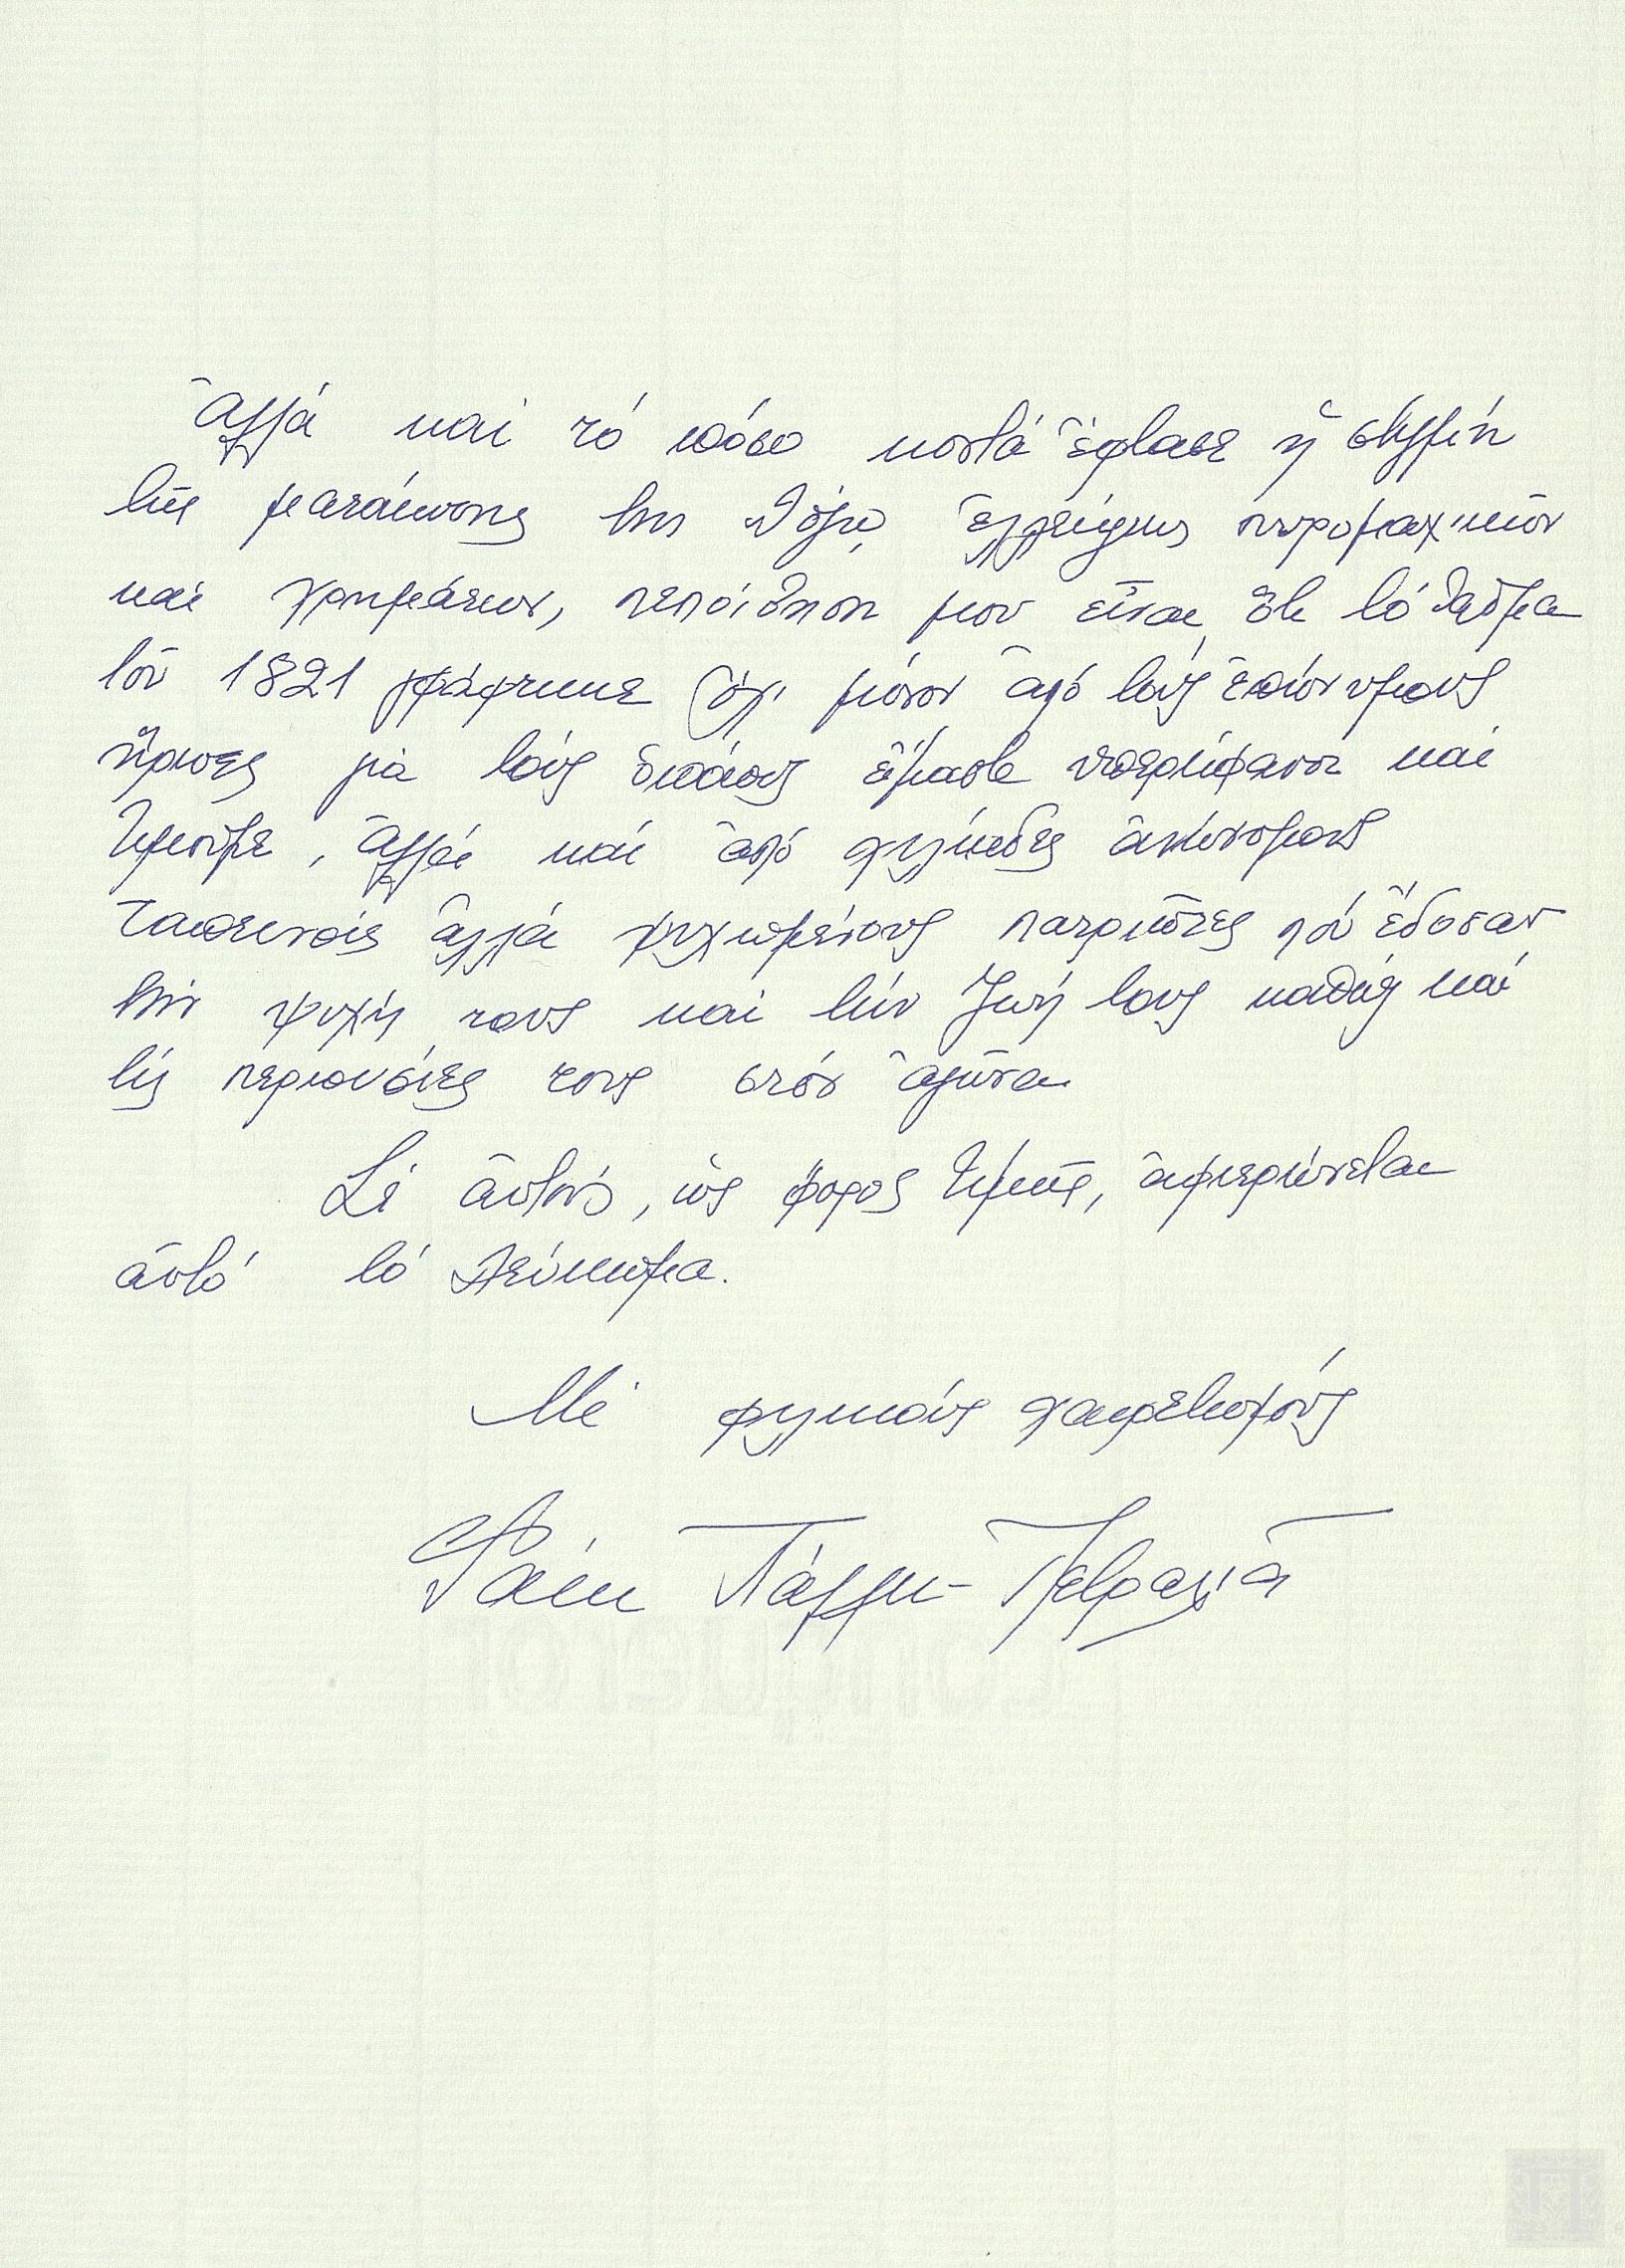 Ἀλλά καί τό πόσο κοντά ἔφτασε ἡ στιγμή
τῆς ματαίωσης της λόγω ἐλλείψεως πυρομαχικῶν
καί χρημάτων, πεποίθηση μου εἶναι ὅτι τό θαῦμα
τοῦ 1821 γράφτηκε ὄχι μόνον ἀπό τούς ἐπώνυμους
ἥρωες γιά τούς ὁποίους εἴμαστε ὑπερήφανοι καί
τιμοῦμε, ἀλλά καί ἀπό χιλιάδες ἀνώνυμους
ταπεινούς ἀλλά ψυχωμένους πατριῶτες πού ἔδοσαν
τήν ψυχή τους καί τήν ζωή τους καθώς καί
τίς περιουσίες τους στόν ἀγῶνα
Σέ αὐτούς, ὡς φόρος τιμῆς, ἀφιερώνεται
αὐτό τό λεύκωμα.
Μέ φιλικούς χαιρετισμούς
Φαίη Πάλλη-Πετραλιᾶ